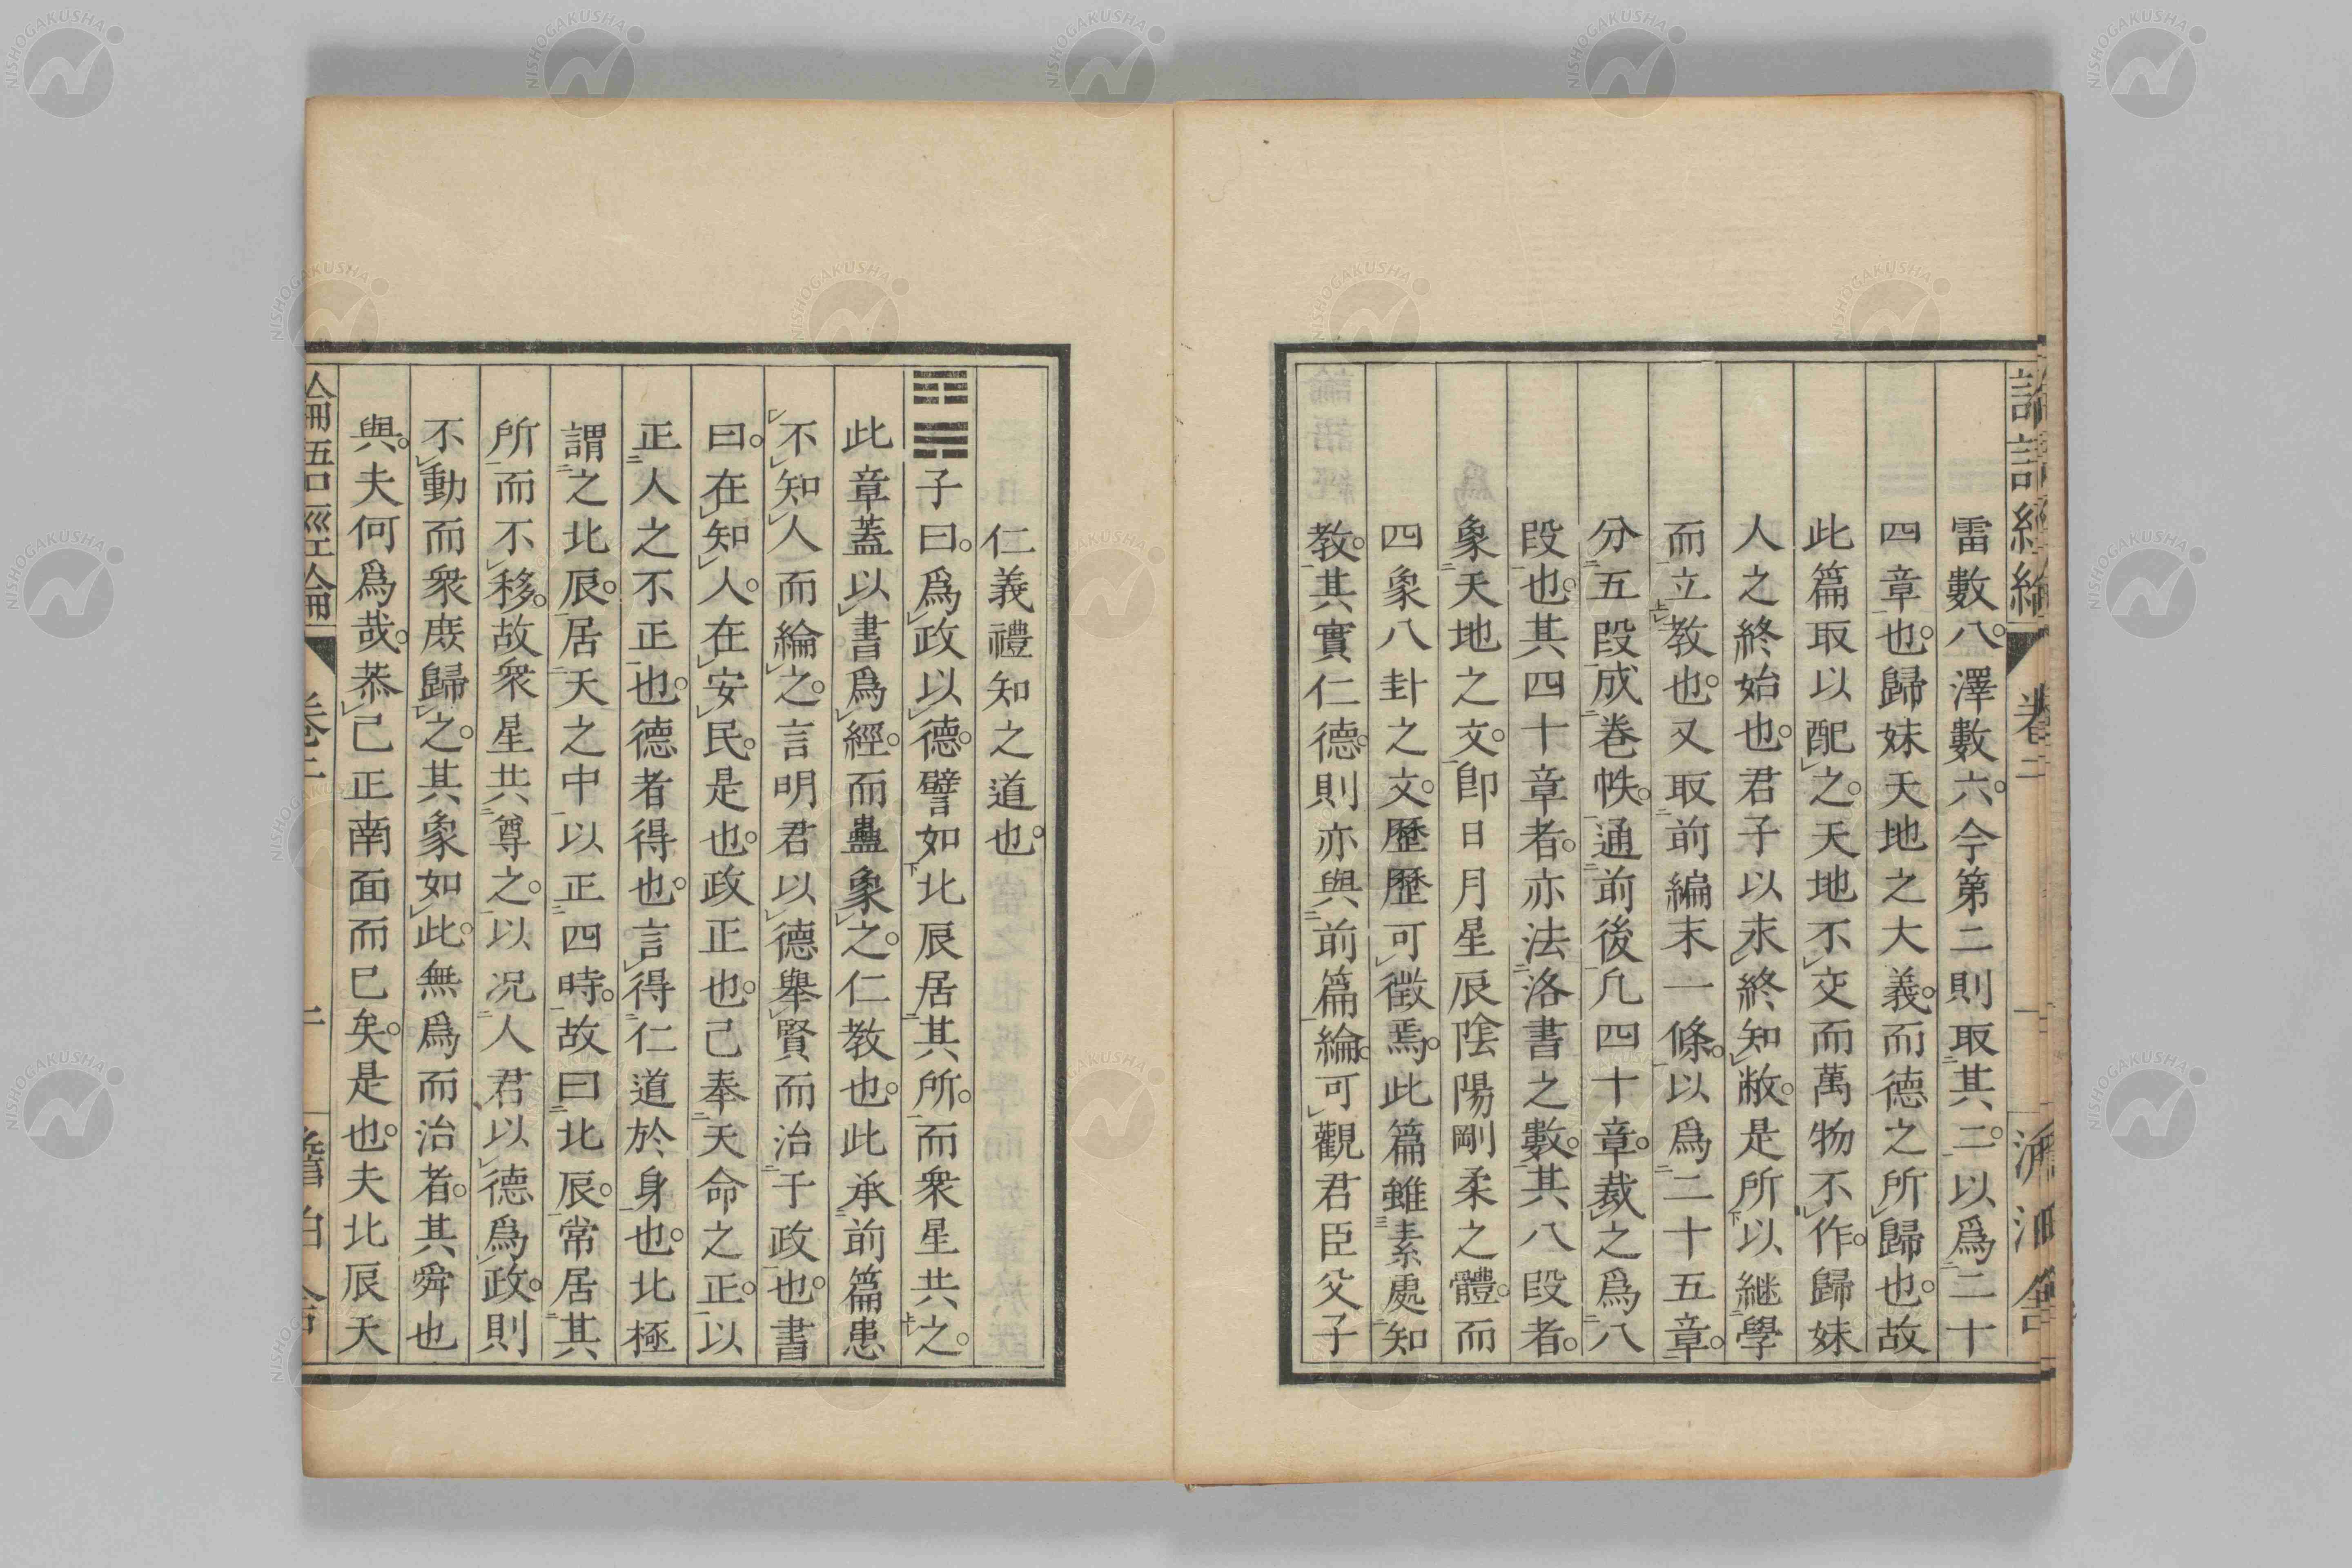 雷數八。澤數六。今第二則取其二。以爲二十
四章也。歸妹天地之大義。而德之所歸也。故
此篇取以配之。天地不交而萬物不作。歸妹
人之終始也。君子以永終知敝。是所以継學
而立教也。又取前編末一條。以爲二十五章。
分五段成卷帙。通前後凡四十章。裁之爲八
段也。其四十章者。亦法洛書之數。其八段者。
象天地之文。卽日月星辰陰陽剛柔之體。而
四象八卦之文。歷歷可徵焉。此篇雖素處知
教。其實仁德。則亦與前篇綸。可觀君臣父子
仁義禮知之道也。
䷑子曰。爲政以德。譬如北辰居其所。而衆星共之。
此章蓋以書爲經。而蠱象之。仁教也。此承前篇患
不知人而綸之。言明君以德舉賢而治于政也。書
曰。在知人。在安民。是也。政正也。己奉天命之正。以
正人之不正也。德者得也。言得仁道於身也。北極
謂之北辰。居天之中以正四時。故曰北辰。常居其
所而不移。故衆星共尊之。以况人君以德爲政。則
不動而衆庶歸之。其象如此。無爲而治者。其舜也
與。夫何爲哉。恭己正南面而已矣。是也。夫北辰天
論語經綸 卷二
NISHOGAKUSHA